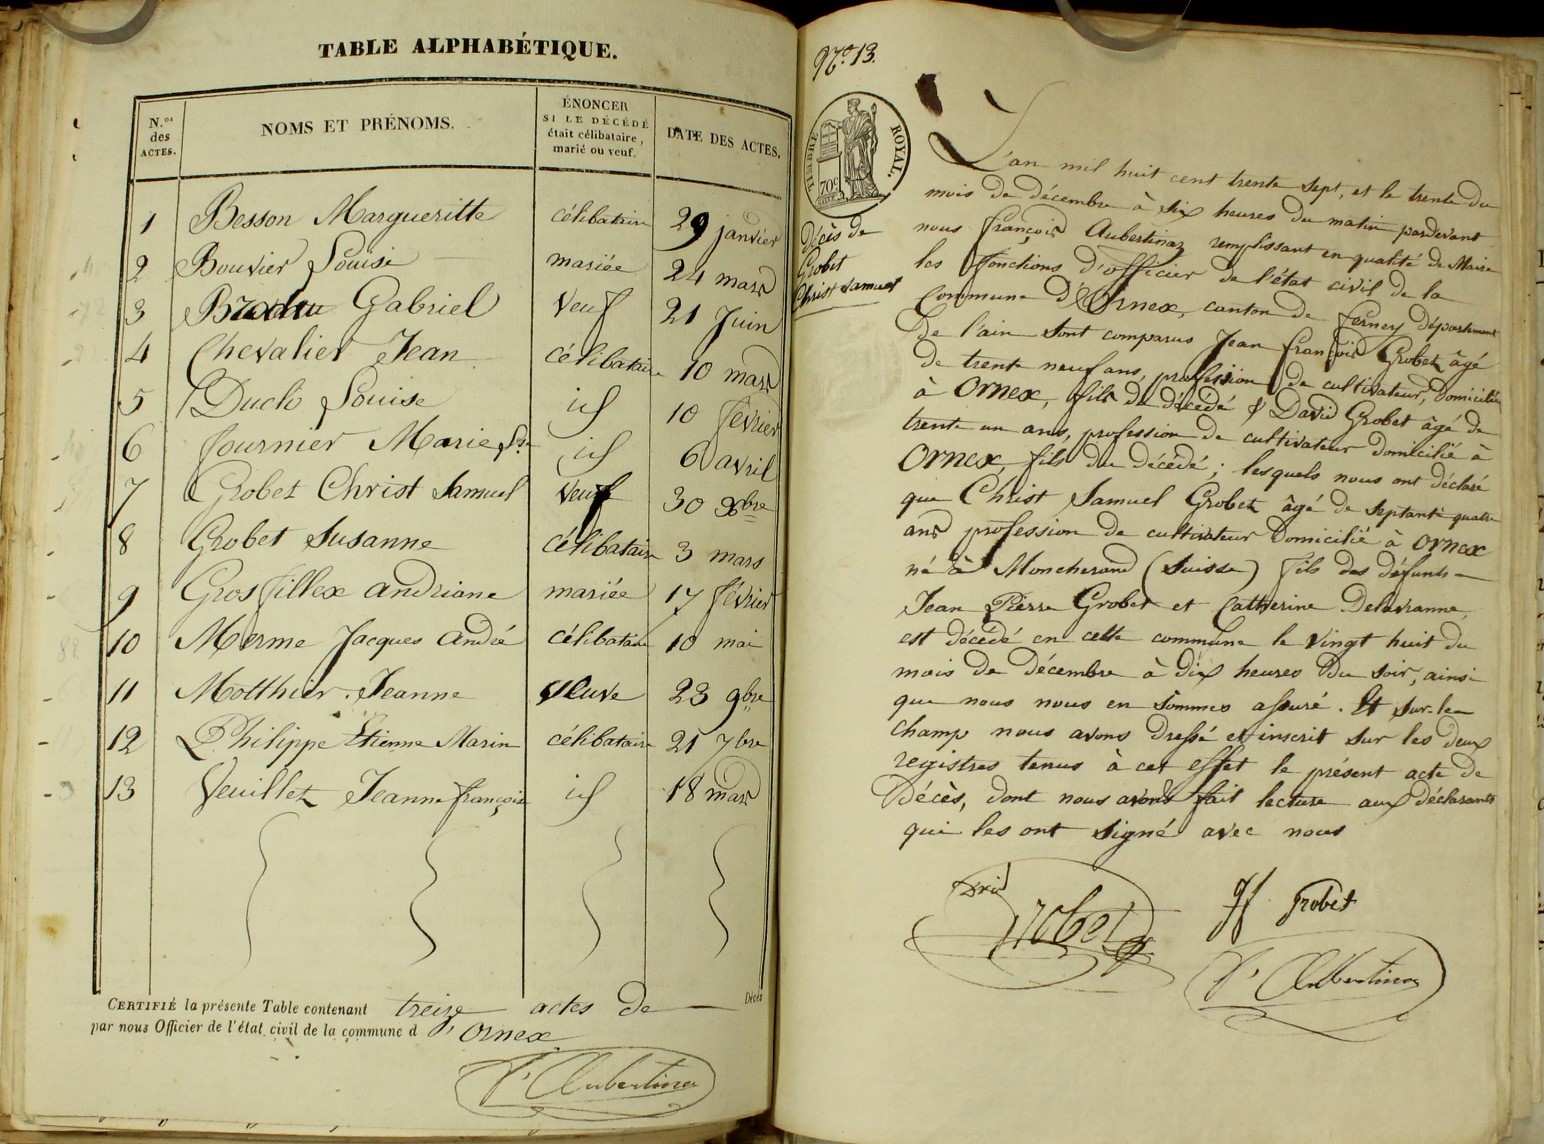 TABLE ALPHABÉTIQUE.
N.os des ACTES.
NOMS ET PRÉNOMS.
ÉNONCER SI LE DÉCÉDÉ était célibataire, marié ou veuf.
DATE DES ACTES.
1 Besson Margueritte célibataire 29 janvier
2 Bouvier Louise mariée 24 mars
3 Gabriel Veuf 21 Juin
4 Chevalier Jean célibataire 10 mars
5 Duclô Louise id 10 février
6 fournier Marie id 6 avril
7 Grobet Christ Samuel Veuf 30 Xbre
8 Grobet Susanne célibataire 3 mars
9 Grosfillex andriane mariée 17 février
10 Merme Jacques andré célibataire 10 mai
11 Motthier Jeanne veuve 23 9bre
12 Philippe Etienne Marin célibataire 21 7bre
13 Veuillet Jeanne françoise id 18 mars
CERTIFIÉ la présente Table contenant treize actes de Décès
par nous Officier de l'état civil de la commune d'Ornex
f. Aubertinaz
No 13.
TIMBRE ROYAL.
70c
Décès de
Grobet
Christ Samuel
L'an mil huit cent trente sept, et le trente du
mois de décembre à six heures du matin pardevant
nous françois Aubertinaz remplissant en qualité de Maire
les fonctions d'officier de l'état civil de la
Commune d'Ornex, canton de ferney département
De l'ain sont comparus Jean françois Grobet âgé
de trente neuf ans, profession de cultivateur, Domicilié
à Ornex, fils du décédé & David Grobet âgé de
trente un ans, profession de cultivateur Domicilié à
Ornex, fils du décédé ; lesquels nous ont déclaré
que Christ Samuel Grobet âgé de septante quatre
ans profession de cultivateur Domicilié à Ornex
né à Moncherand (Suisse) fils des défunts
Jean Pierre Grobet et Catherine Delavranne,
est décédé en cette commune le vingt huit du
mois de Décembre à dix heures Du soir, ainsi
que nous nous en sommes assuré. Et sur-le
champ nous avons dressé et inscrit sur les deux
registres tenus à cet effet le présent acte de
Décès, dont nous avons fait lecture aux déclarants
qui les ont signé avec nous
Dvid Grobet
jf Grobet
f. Aubertinaz